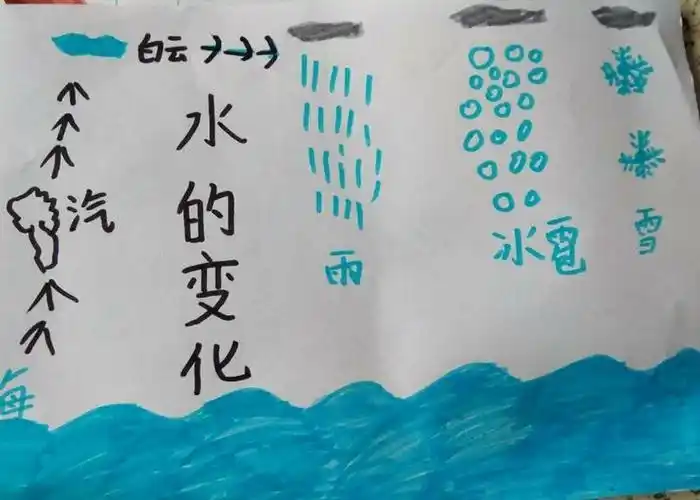 白云
水的变化
汽
雨
冰雹
雪
海